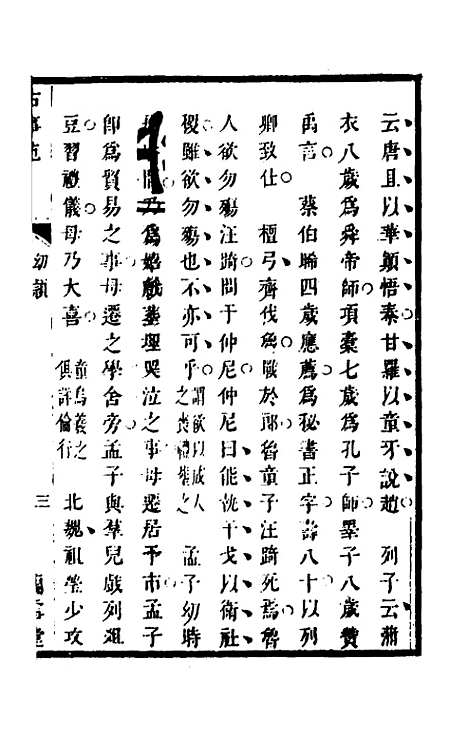 云唐且以華顛悟秦甘羅以童牙說趙　列子云蒲
衣八歲為舜帝師項橐七歲為孔子師睾子八歲贊
禹言　蔡伯晞四歲應薦為秘書正字壽八十以列
卿致仕　檀弓齊伐魯戰於郎魯童子汪踦死焉魯
人欲勿殤汪踦問于仲尼仲尼曰能執干戈以衛社
稷雖欲勿殤也不亦可乎謂欲以成人之喪禮葬之　孟子幼時
為嬉戲墓埋哭泣之事母遷居于市孟子
即為貿易之事母遷之學舍旁孟子與羣兒戲列俎
豆習禮儀母乃大喜童烏羲之俱詳倫行　北魏祖瑩少攻
幼穎　三